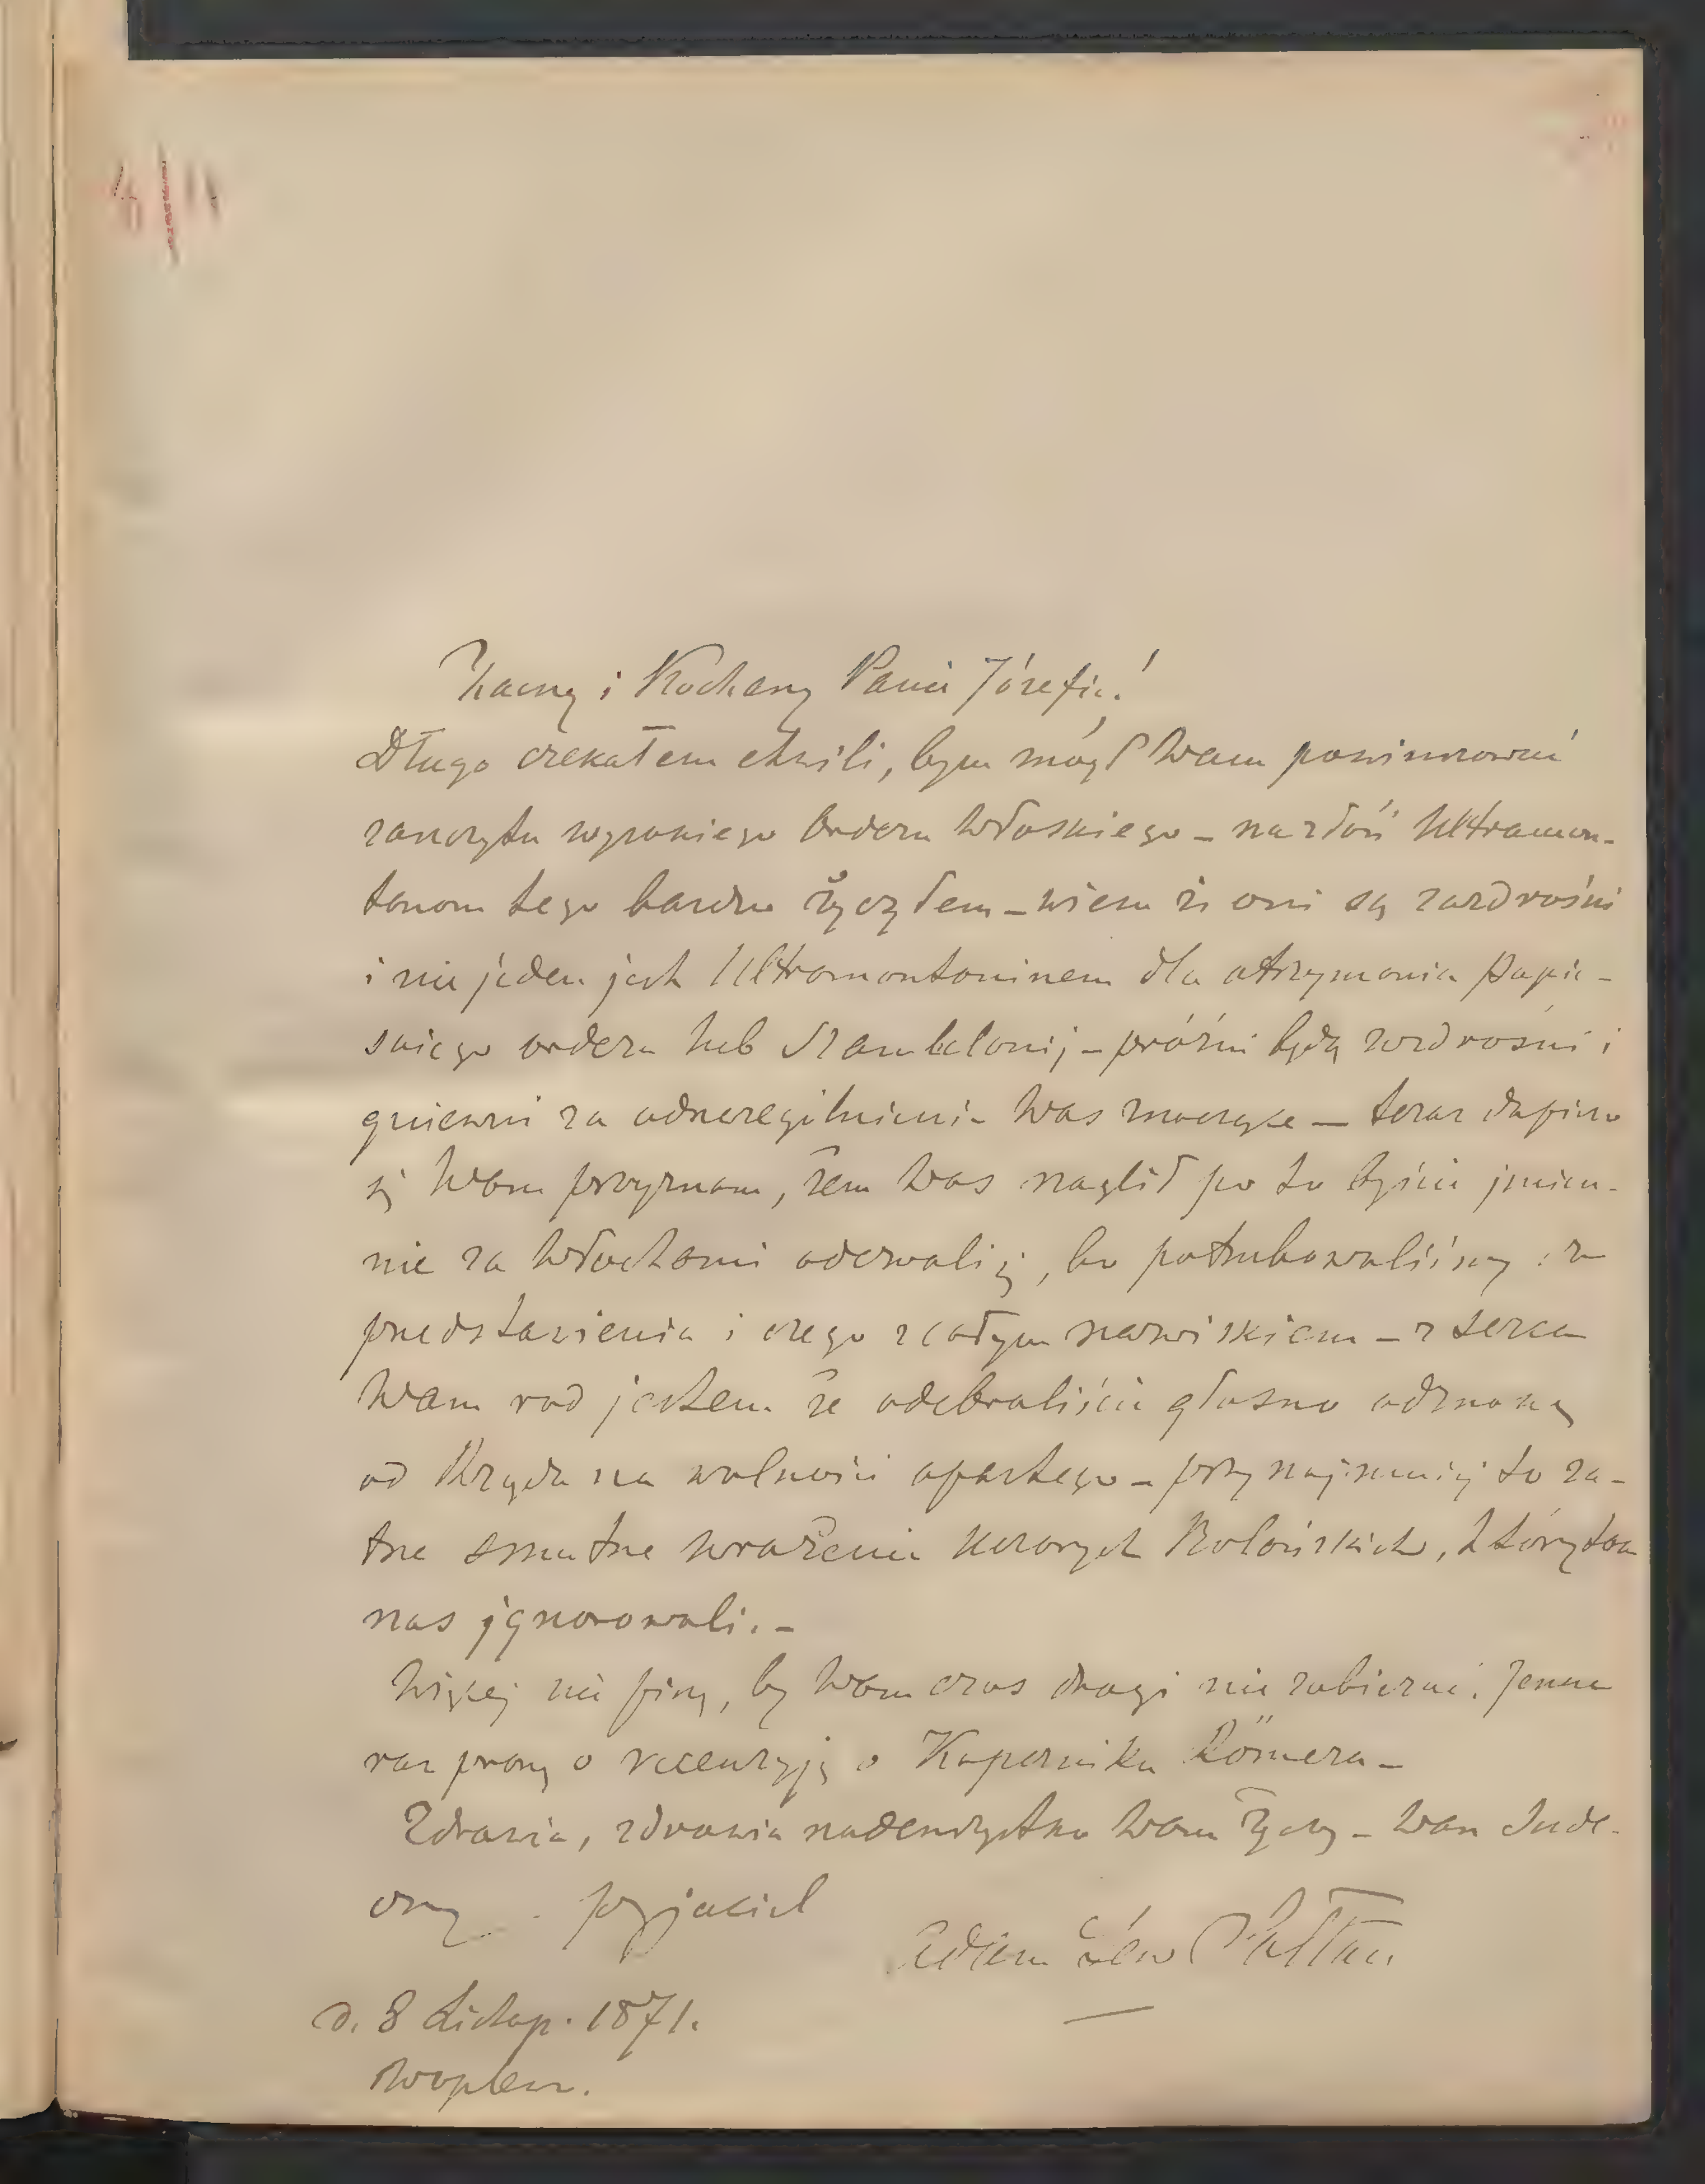 Zacny i Kochany Panie Józefie!
Długo czekałem chwili, bym mógł Wam powinszować
zaszczytu wysokiego orderu Włoskiego – na złość Ultramon-
tanom tego bardzo życzyłem – wiem że oni są zazdrośni
i nie jeden jest Ultramontaninem dla otrzymania Papie-
skiego orderu lub Szambelonij – próżni będą zazdrośni i
gniewni za Was – teraz dopiero
się Wam przyznam, żem Was naglił po to byście jmien-
nie za Włochami odezwali się, bo potrzebowaliśmy
predstawienia i czego z całym nazwiskiem – z serca
Wam rad jestem że odebraliście głośno odznakę
od Rządu na wolności opartego – przynajmniej to za-
trze smutne wrażenie Uczonych Bolońskich, którzy tam
nas jgnorowali. –
Więcej nie piszę, by Wam czas drogi nie zabierać. Jeszcze
raz proszę o recenzyję o Koperniku Römera –
Zdrowia, zdrowia nadewszystko Wam życzy – Wasz
przyjaciel
Adam Lew Sołtan
d. 8 Listop. 1871.